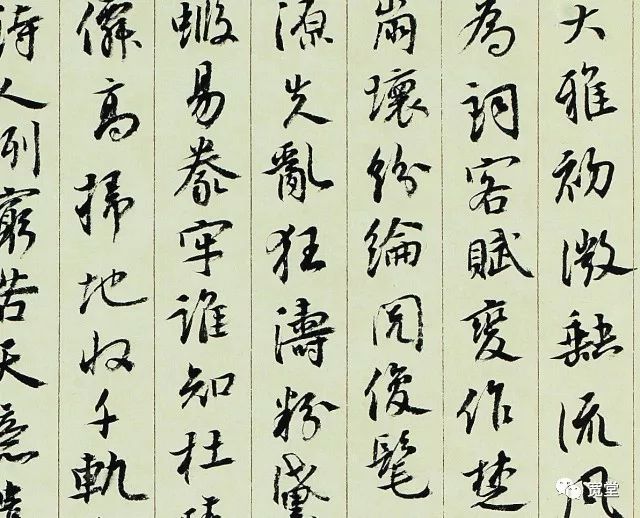 大雅初微缺流風
為詞客賦變作楚
崩壞紛綸閱俊髦
源失亂狂濤粉黛
蝦易豢牢誰知杜
僊高掃地收千軌
詩人例窮苦天意遣
宽堂